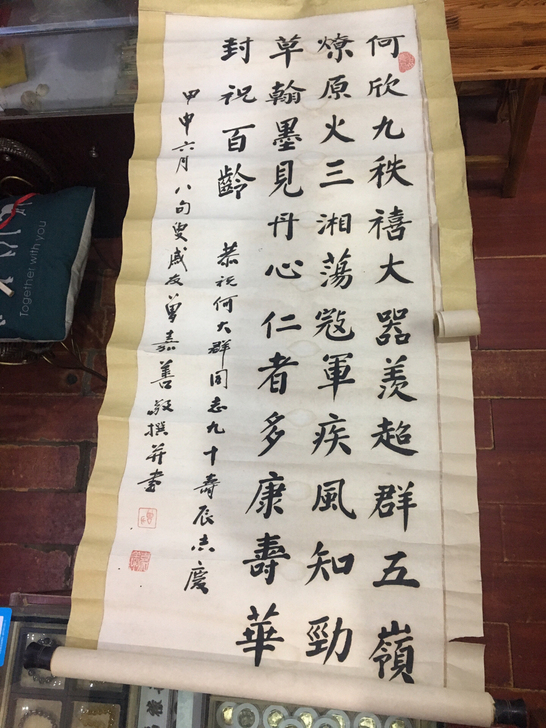 何欣九秩禧大器羨超群五嶺
燎原火三湘蕩寇軍疾風知勁
草翰墨見丹心仁者多康壽華
封祝百齡
恭祝何大群同志九十壽辰志慶
甲申六月八旬叟戚友曾嘉善敬撰并書
Together with you